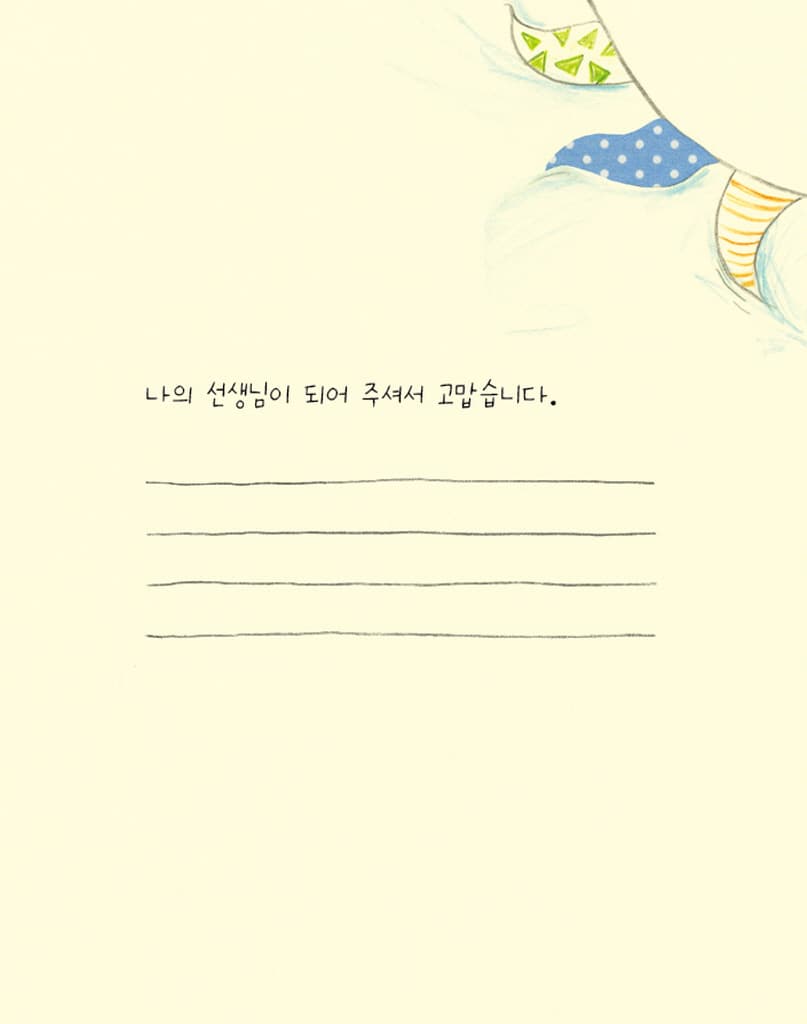 나의 선생님이 되어 주셔서 고맙습니다.